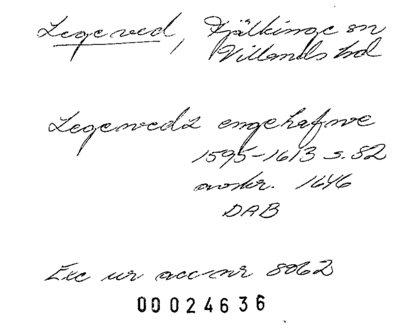 Legeved, Fjälkinge sn
Villands hd
Legeveds engehafwe
1595-1613 s. 82
avskr. 1646
DAB
Exc ur acc-nr 8062
00024636